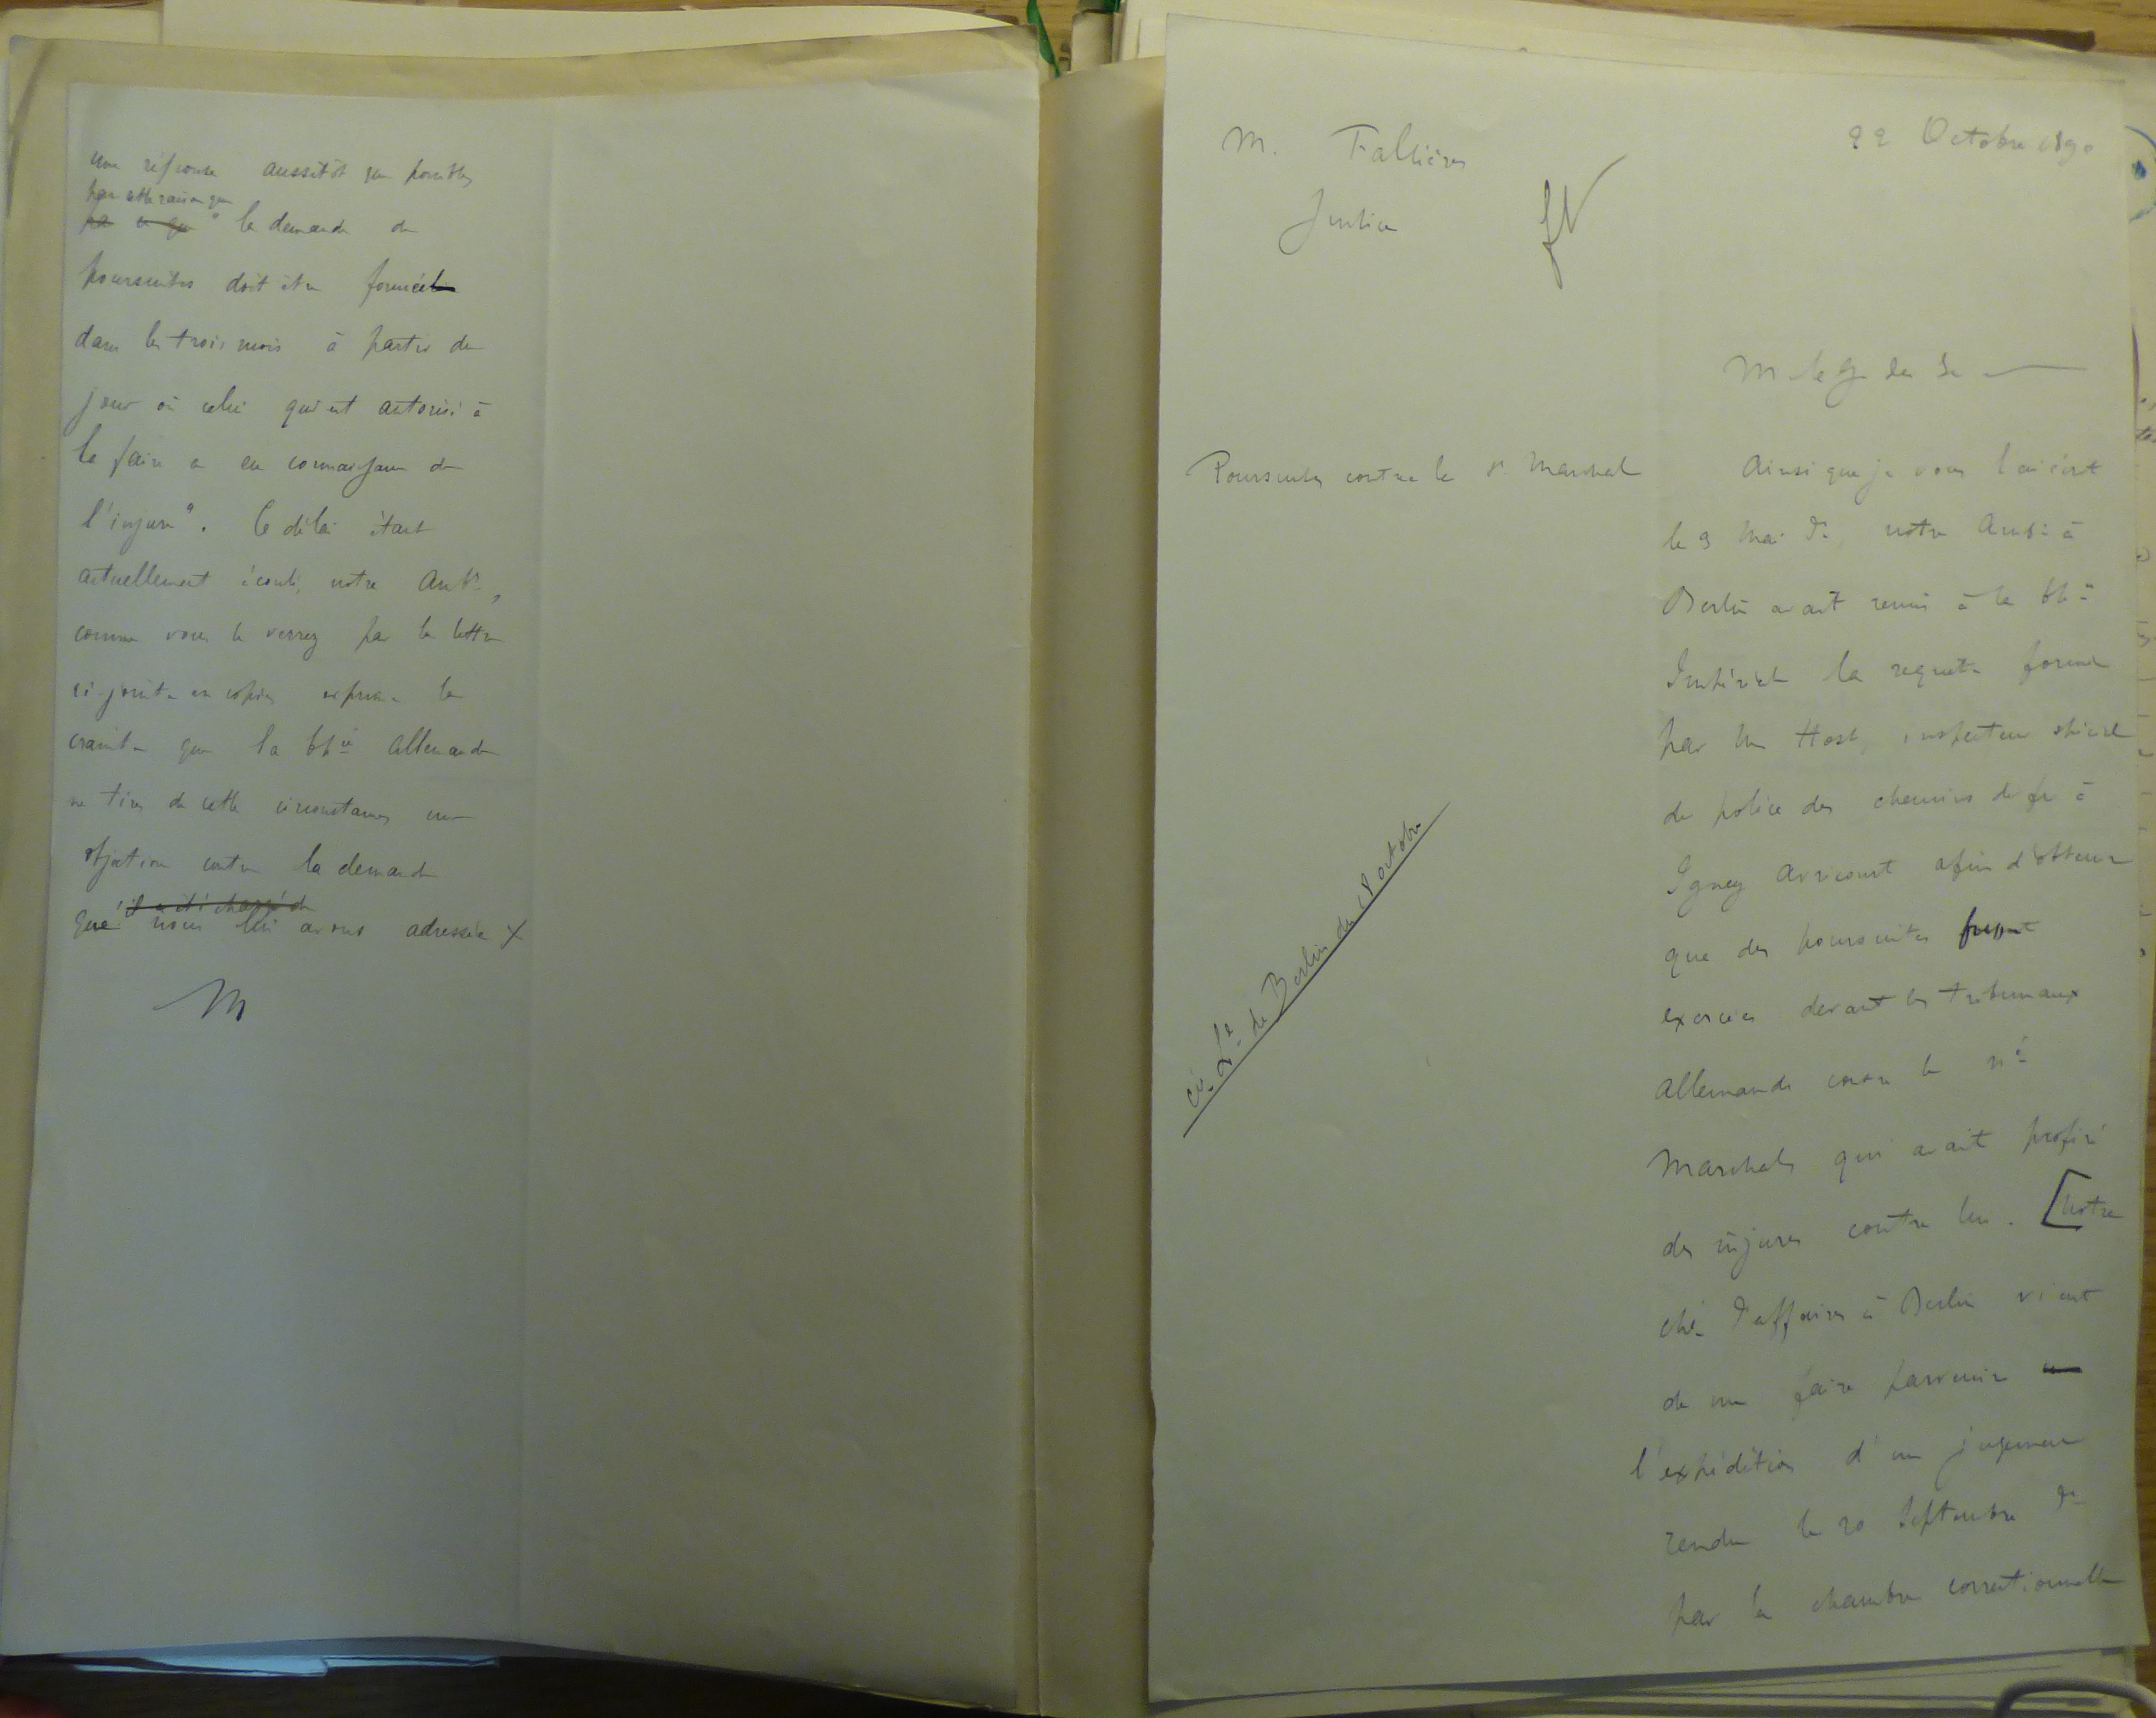 une réponse aussitôt que possible,
par cette raison que
par ce que " la demande de
poursuites doit être formée
dans les trois mois à partir du
jour où celui qui est autorisé à
la faire a eu connaissance de
l'injure". Ce délai étant
actuellement écoulé, notre Ambr,
comme vous le verrez par la lettre
ci-jointe en copie, exprime la
crainte que la Chie Allemande
ne tire de cette circonstance une
objection contre la demande
il a été chargé de
que nous lui avons adressée X
M
M. Fallières
Justice
22 Octobre 1890
M le G des Sc
Poursuites contre le Sr Marchal
Ainsi que je vous l'ai écrit
le 9 Mai dr, notre Ambr à
Berlin avait remis à la Chie
Impériale la requête formée
par M Host, inspecteur spécial
de police des chemins de fer à
Igney Avricourt afin d'obtenir
que des poursuites fussent
exercées devant les tribunaux
Allemands contre le né
Marchal, qui avait proféré
des injures contre lui. [Notre
ché d'affaires à Berlin vient
de me faire parvenir
l'expédition d'un jugement
rendu le 20 Septembre dr
par la chambre correctionnelle
cie Le de Berlin du 18 octobre